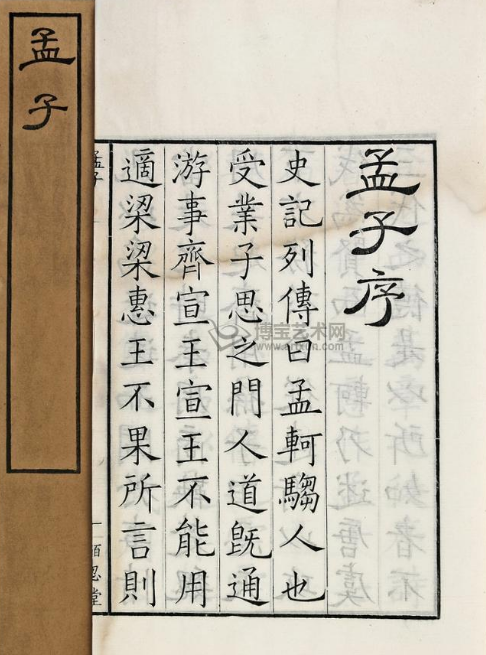 孟子
孟子序
史記列傳曰孟軻騶人也
受業子思之門人道既通
游事齊宣王宣王不能用
適梁梁惠王不果所言則
孟子
一
博宝艺术网